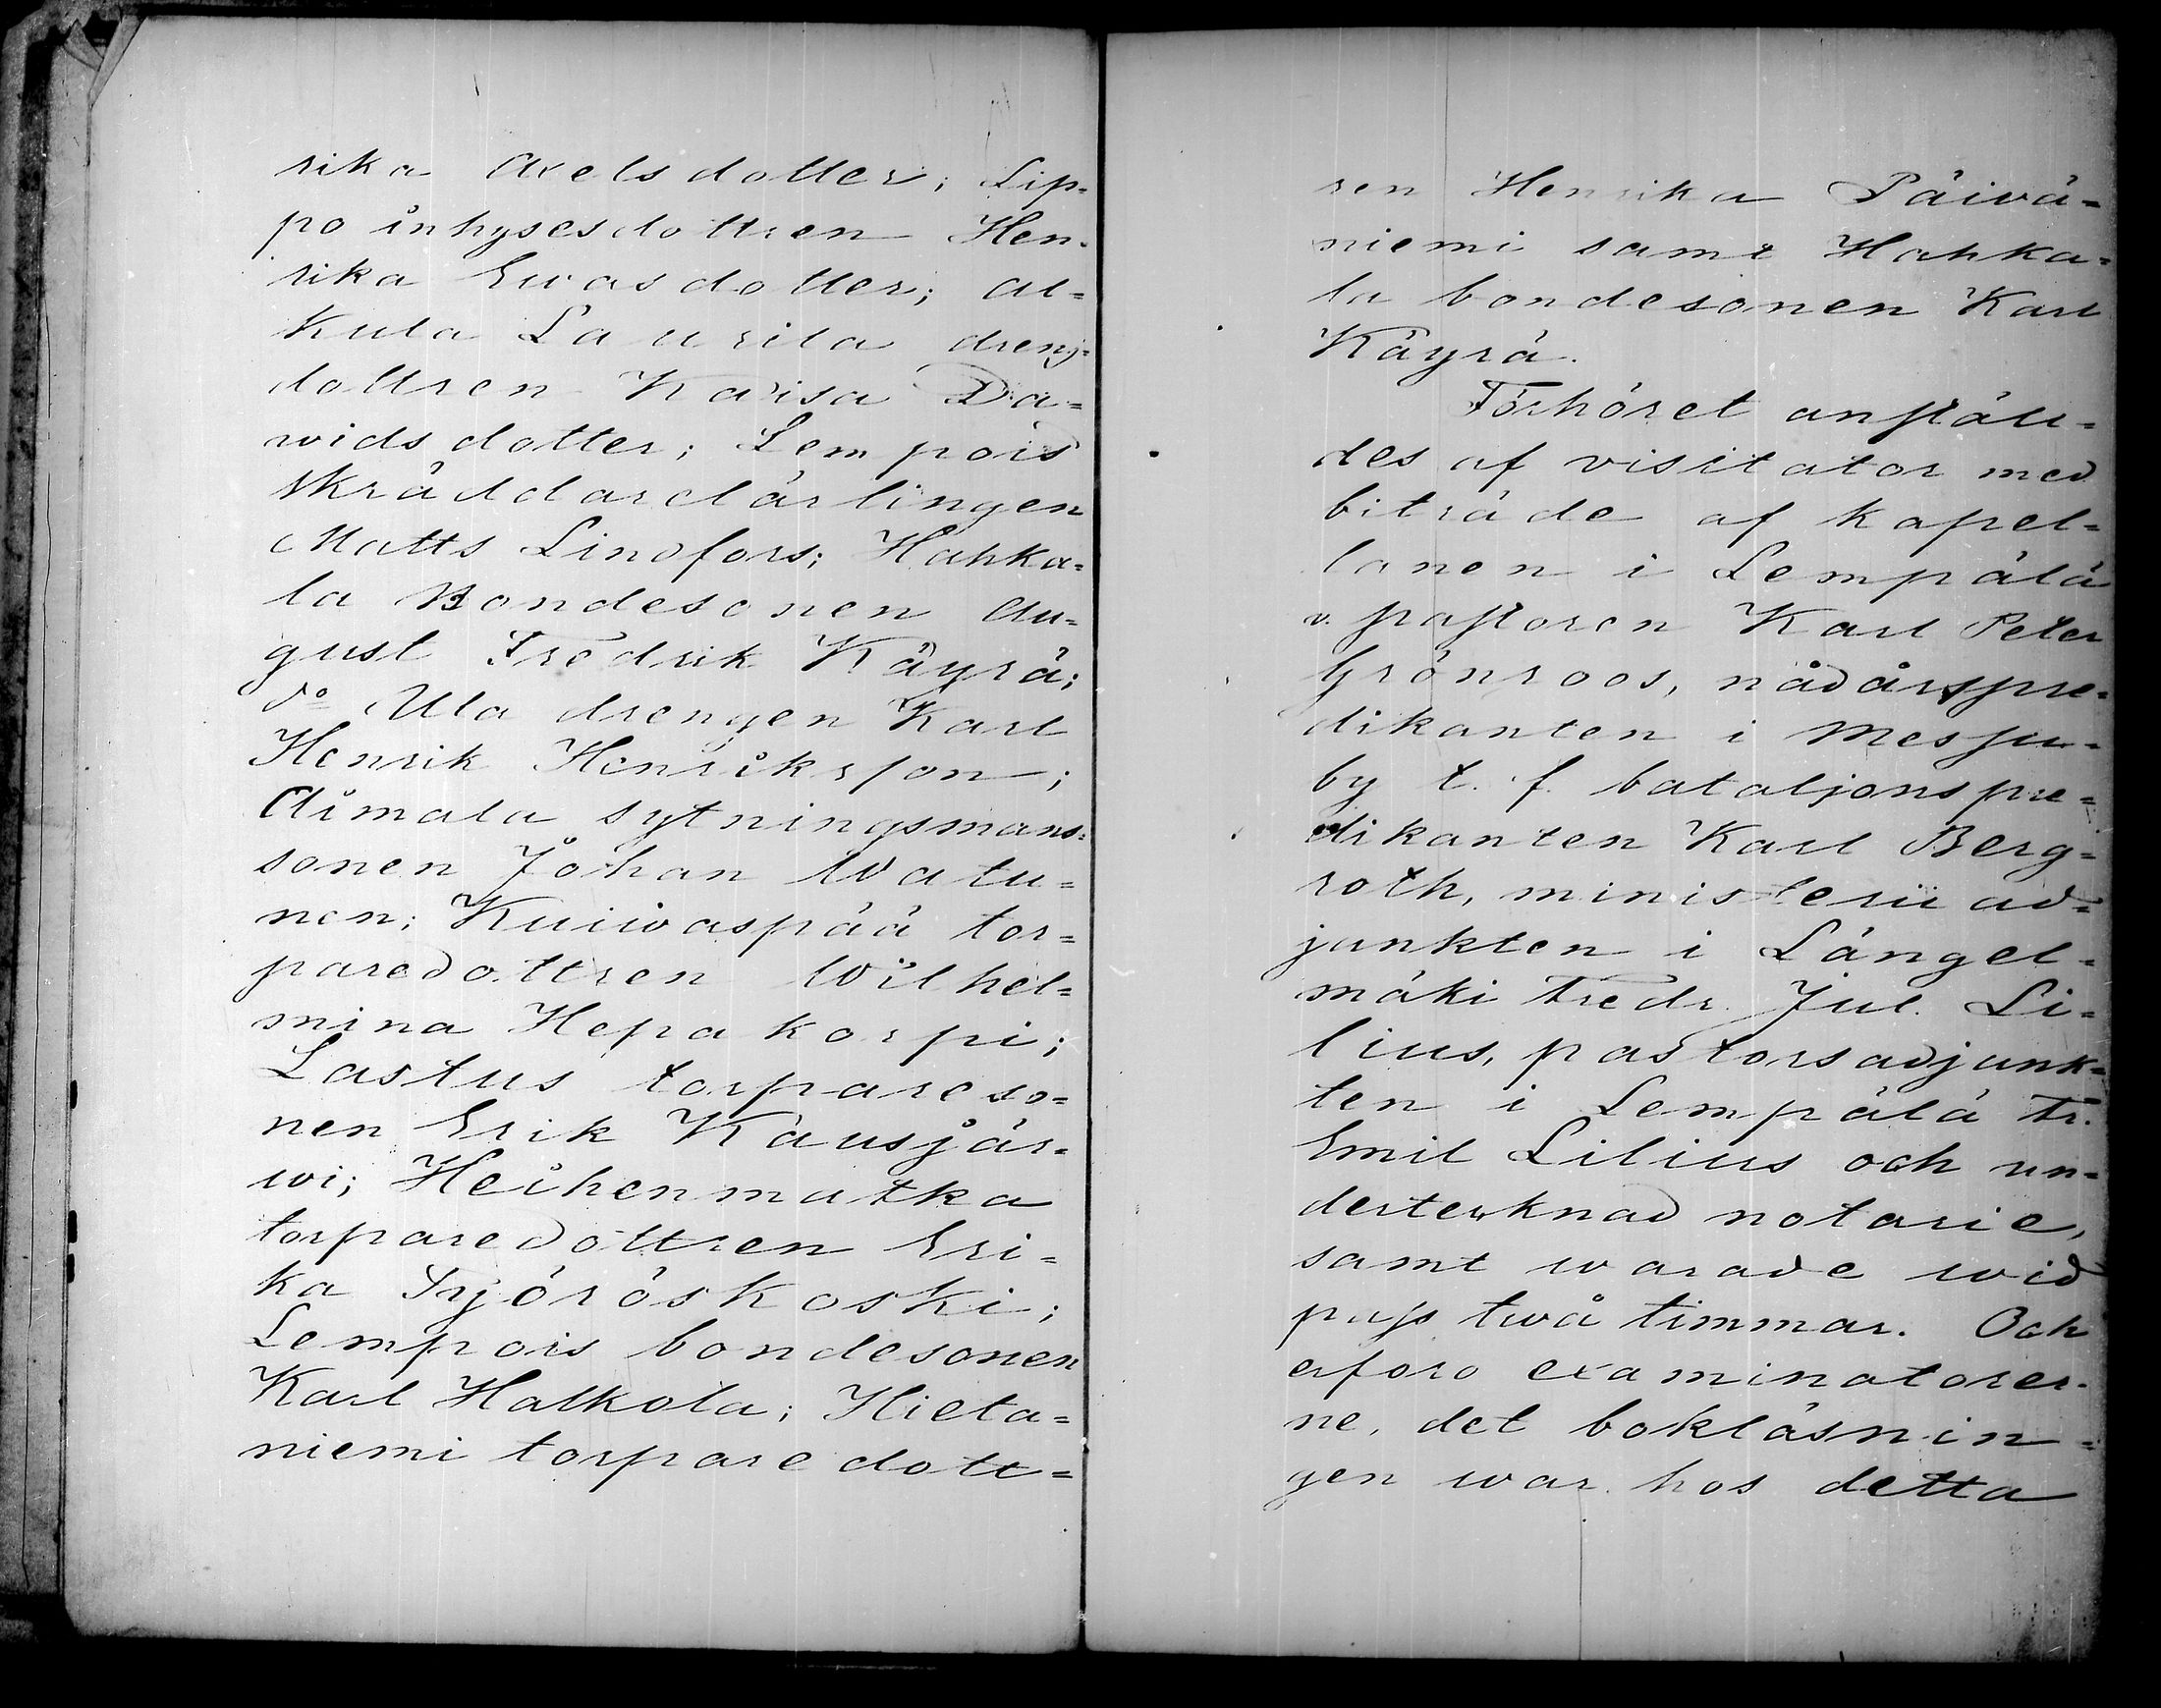 rika Axelsdotter; Lip=
po inhysesdottren Hen=
rika Ewasdotter; Al=
kula Laurila dreng=
dottren Kaisa Da=
widsdotter; Lempois
skräddarelärlingen
Matts Lindfors; Hahka=
la Bondesonen Au=
gust Fredrik Käyrä;
d:o Ala drengen Karl
Henrik Henriksson;
Aimala sytningsmans=
sonen Johan Watu=
nen; Kuiwaspää tor=
paredottren Wilhel=
mina Hepakorpi;
Lastus torpareso=
nen Erik Kausjär=
wi; Heihenmatka
torparedottren Eri=
ka Työröskoski;
Lempois bondesonen
Karl Halkola; Hieta=
niemi torparedott=
ren Henrika Päivä=
niemi samt Hahka=
la bondesonen Karl
Käyrä.
Förhöret anställ=
des af visitator med
biträde af kapel=
lanen i Lempälä
v. pastoren Karl Peter
Grönroos, nådårspre=
dikanten i Messu=
by t. f. bataljonspre=
dikanten Karl Berg=
roth, ministerii ad=
junkten i Längel=
mäki Fredr. Jul. Li=
lius, pastorsadjunk=
ten i Lempälä Fr.
Emil Lilius och un=
dertecknad notarie,
samt warade wid
pass twå timmar. Och
erforo examinatorer=
ne, det bokläsnin=
gen war hos detta